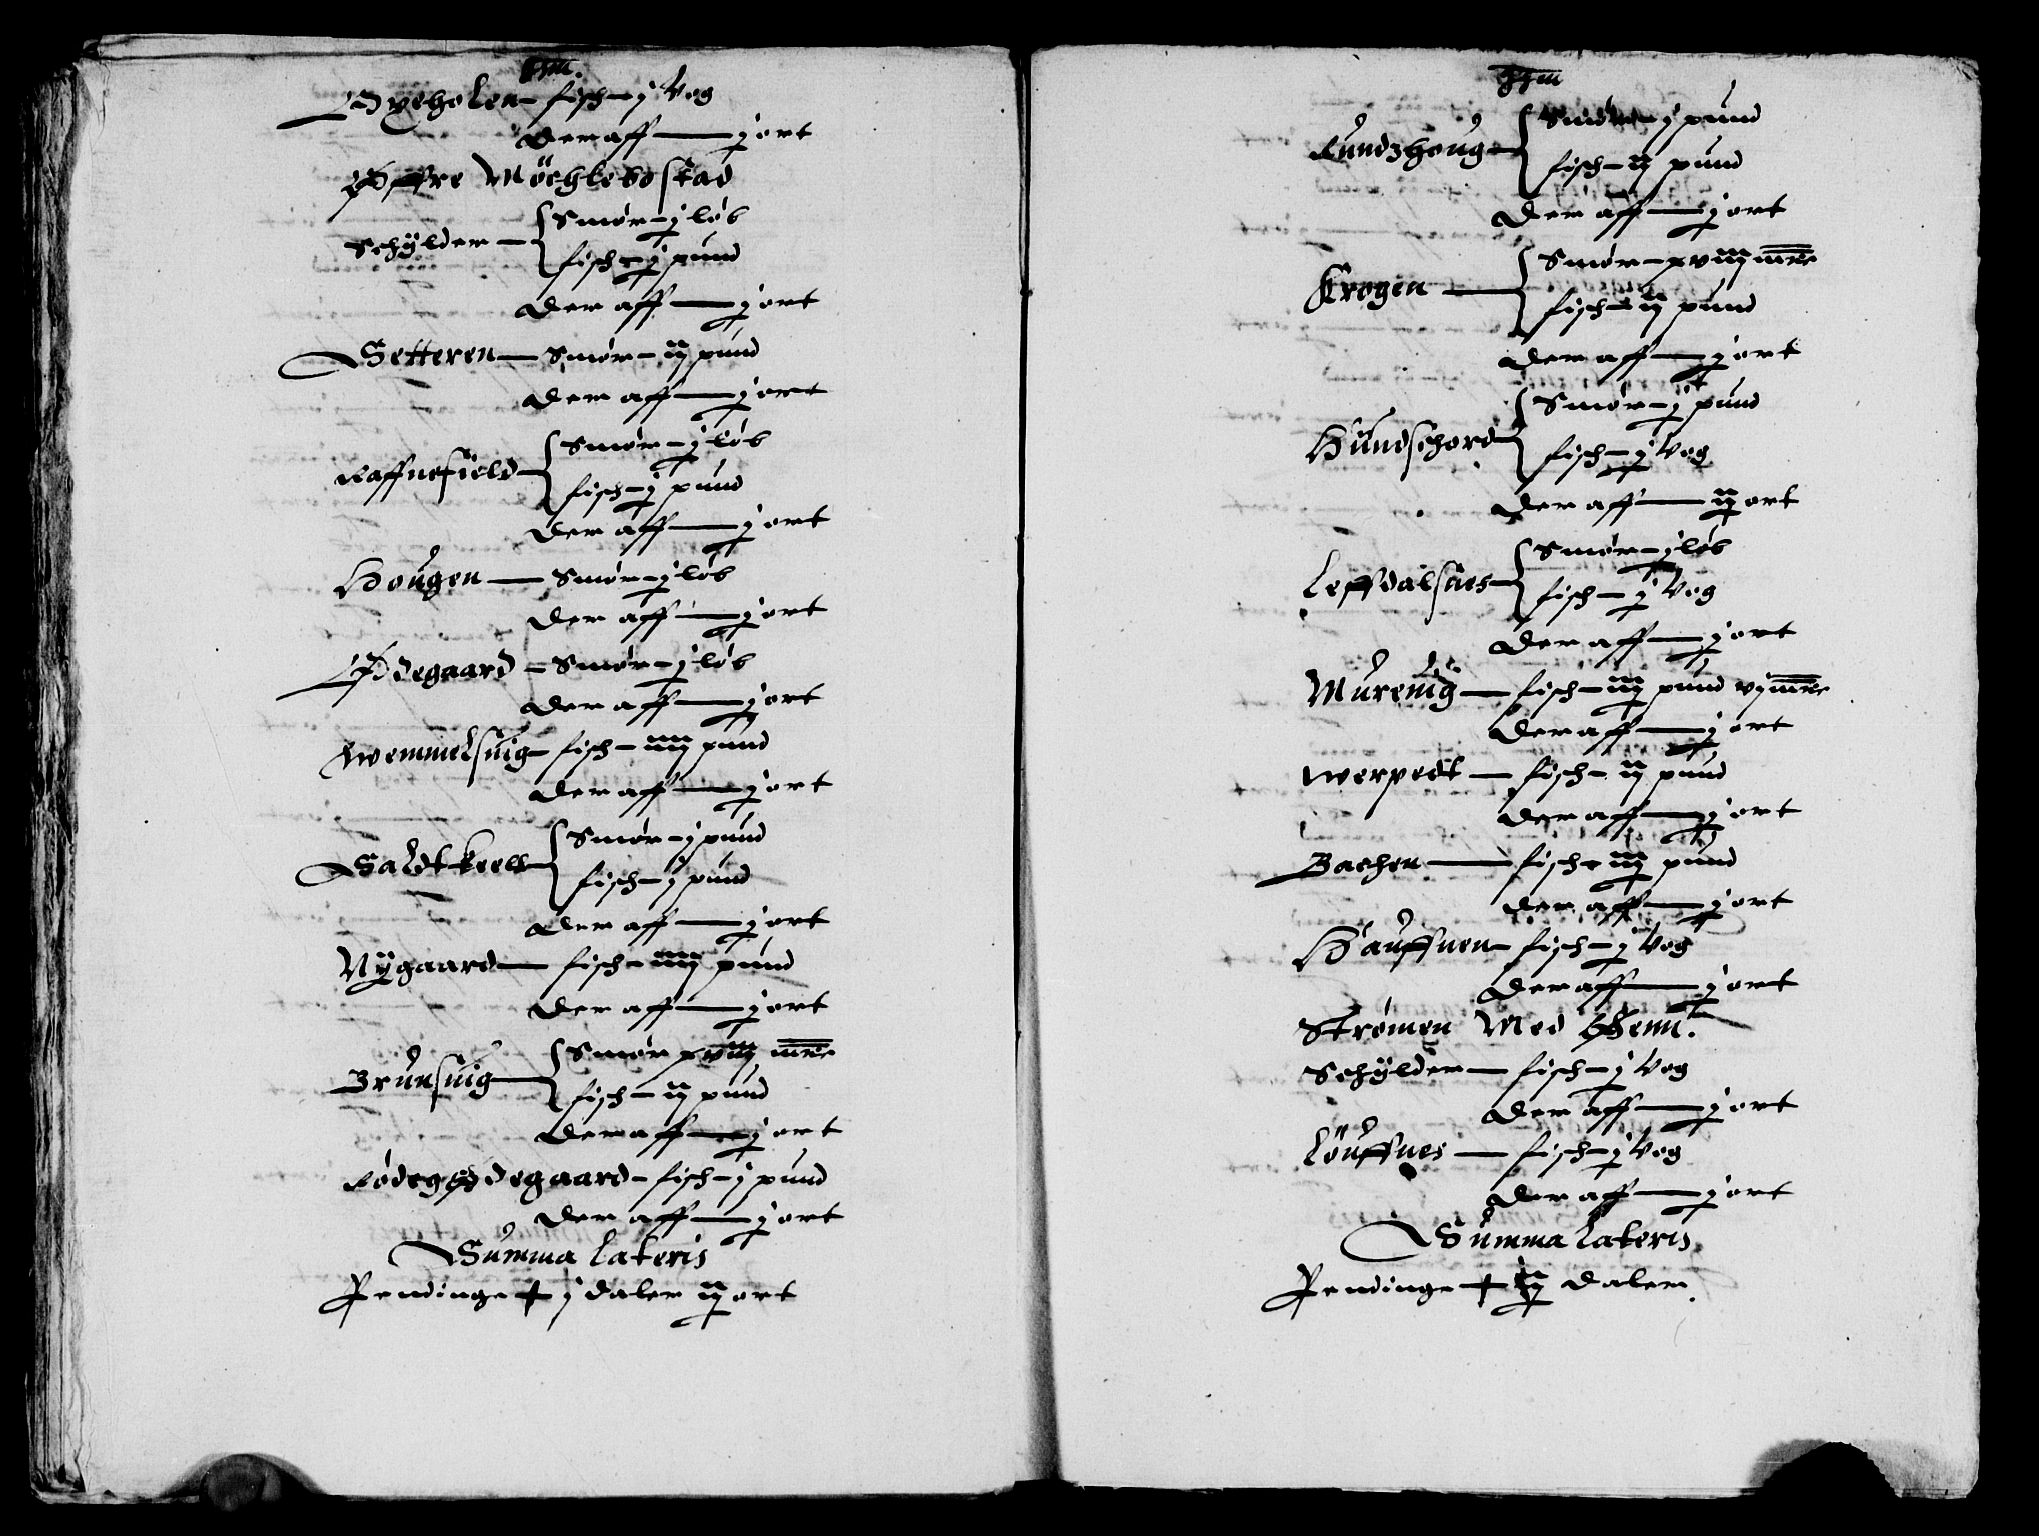 Øyeholen – fisch – j Vog
der aff — j ort
Øffre Möchlebostad
Schÿlder – Smør – j løb
fisch – j pund
der aff — j ort
Setteren — Smør – ij pund
der aff — j ort
Raffnefield – Smør – j løb
fisch – j pund
der aff — j ort
Hougen — Smør – j løb
der aff — j ort
Ødegaard – Smør – j løb
der aff — j ort
Wemmelsuig – fisch – iiij pund
der aff — j ort
Saldtkeell – Smør – j pund
fisch – j pund
der aff — j ort
Nÿgaard — fisch – iiij pund
der aff — j ort
Brunsuig — Smør xviij mrc
fisch – ij pund
der aff — j ort
Rødeg Ødegaard – fisch – j pund
der aff — j ort
Summa Lateris
Pendinge + j daler ij ort
Rundzhoug – Smør – j pund
fisch – ij pund
der aff — j ort
Krogen — Smør – xviij mrc
fisch – ij pund
der aff — j ort
Hundschord – Smør – j pund
fisch – j Vog
der aff — ij ort
Leffdalsnes – Smør – j løb
fisch – j Vog
der aff — j ort
Murenig — fisch – iij pund vj mrc
der aff — j ort
Werpedt — fisch – ij pund
der aff — j ort
Bachen — fisch – iij pund
der aff — j ort
Hauffnen – fisch – j Vog
der aff — j ort
Strømen Med Henn.
Schÿlder — fisch – j Vog
der aff — j ort
Löuffnes — fisch – j Vog
der aff — j ort
Summa Lateris
Pendinge + iij daler.